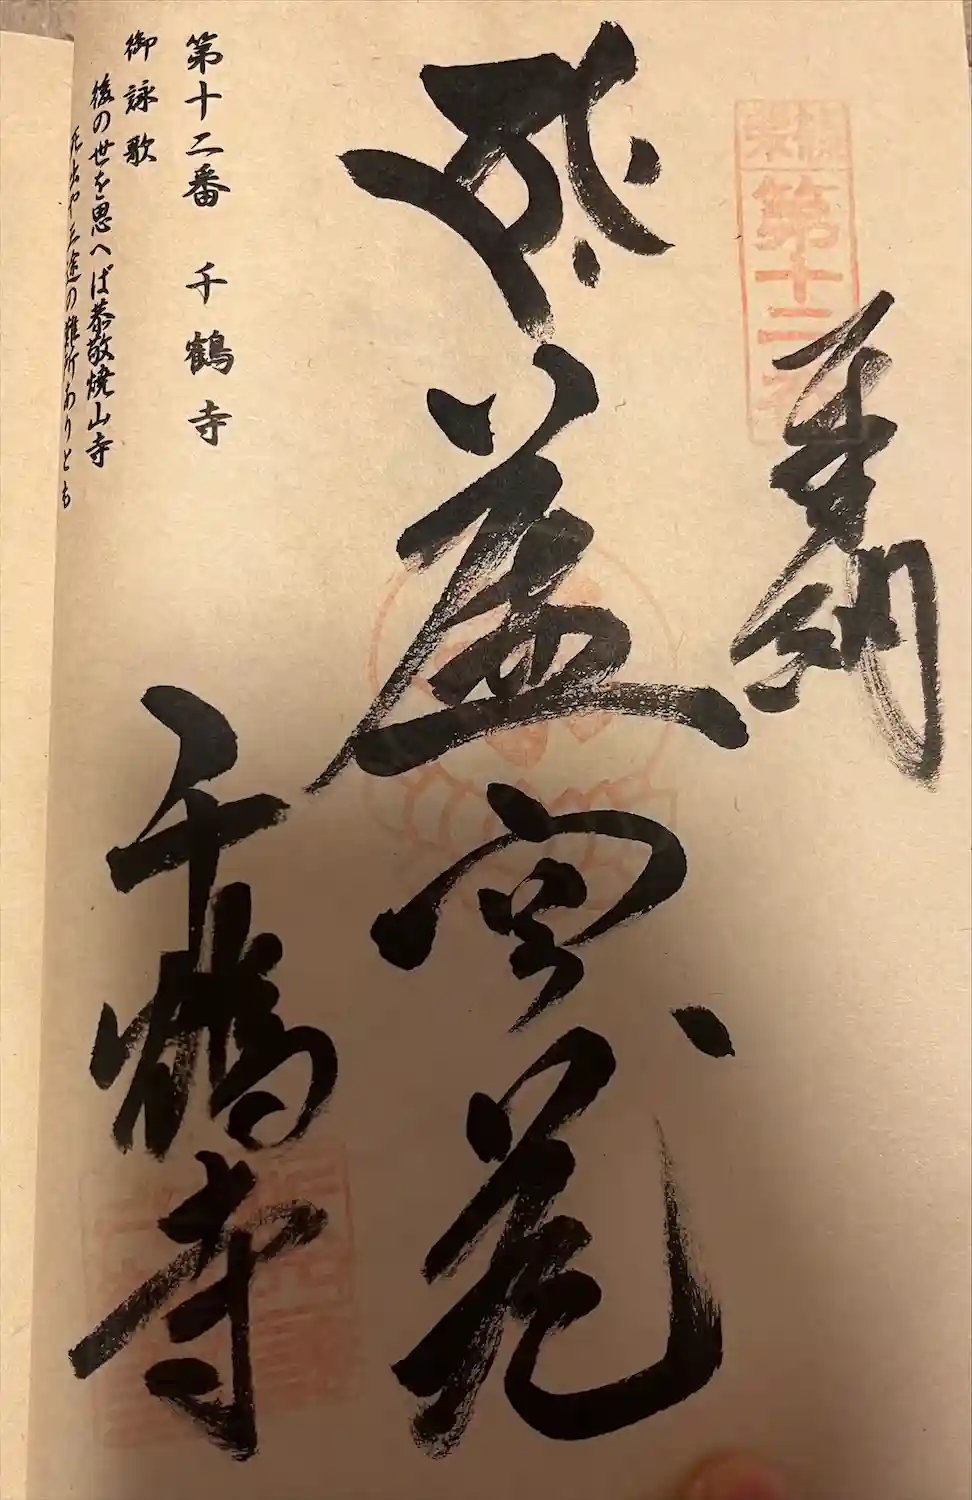 第十二番
奉納
虚空蔵
千鶴寺
第十二番 千鶴寺
御詠歌
後の世を思へば恭敬焼山寺
死出や三途の難所ありとも